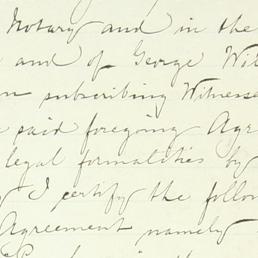 Notary and in the
and of George Wil
n subscribing Witnesse
said foregoing Agr
legal formalities by
I certify the follow
Agreement namely